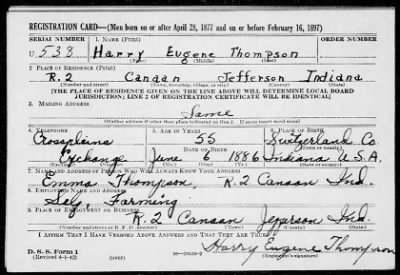 REGISTRATION CARD—(Men born on or after April 28, 1877 and on or before February 16, 1897)
SERIAL NUMBER 1. NAME (Print) ORDER NUMBER
U 538 Harry Eugene Thompson
(First) (Middle) (Last)
2. PLACE OF RESIDENCE (Print)
R.2 Canaan Jefferson Indiana
(Number and street) (Town, township, village, or city) (County) (State)
[THE PLACE OF RESIDENCE GIVEN ON THE LINE ABOVE WILL DETERMINE LOCAL BOARD
JURISDICTION; LINE 2 OF REGISTRATION CERTIFICATE WILL BE IDENTICAL]
3. MAILING ADDRESS
Same
[Mailing address if other than place indicated on line 2. If same insert word same]
4. TELEPHONE 5. AGE IN YEARS 6. PLACE OF BIRTH
Crossplains 55 Switzerland Co.
DATE OF BIRTH
Exchange June 6 1886 Indiana U.S.A.
7. NAME AND ADDRESS OF PERSON WHO WILL ALWAYS KNOW YOUR ADDRESS
Emma Thompson, R.2 Canaan Ind.
8. EMPLOYER'S NAME AND ADDRESS
Self, Farming
9. PLACE OF EMPLOYMENT OR BUSINESS
R.2 Canaan Jefferson Ind.
(Number and street or R. F. D. number) (Town) (County) (State)
I AFFIRM THAT I HAVE VERIFIED ABOVE ANSWERS AND THAT THEY ARE TRUE.
D. S. S. Form 1
(Revised 4-1-42) (over) Harry Eugene Thompson
(Registrant's signature)